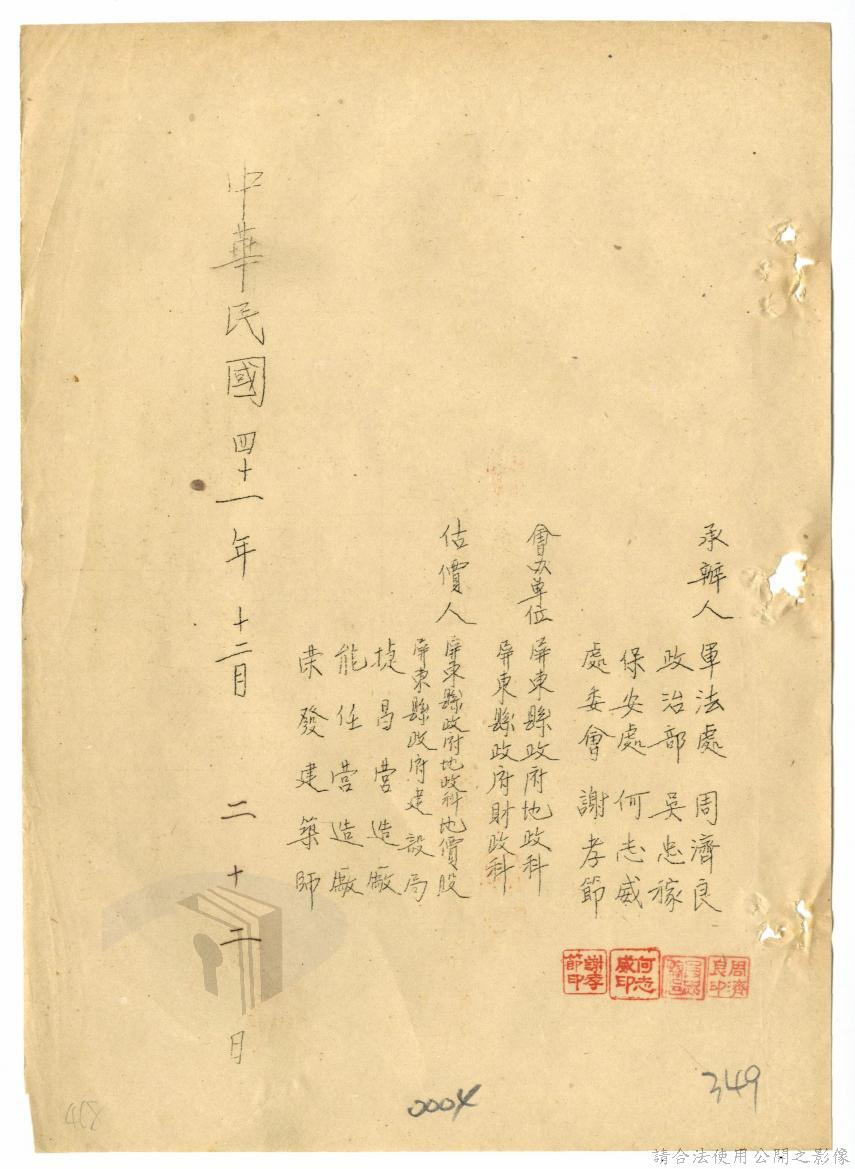 承辦人 軍法處 周濟良
政治部 吳忠稼
保安處 何志威
處委會 謝孝節
會办單位 屏東縣政府地政科
屏東縣政府財政科
估價人 屏東縣政府地政科地價股
屏東縣政府建設局
捷昌营造廠
能任营造廠
荣發建築師
中華民國四十一年十二月二十二日
周濟良印
何志威印
謝孝節印
349
0004
468
請合法使用公開之影像